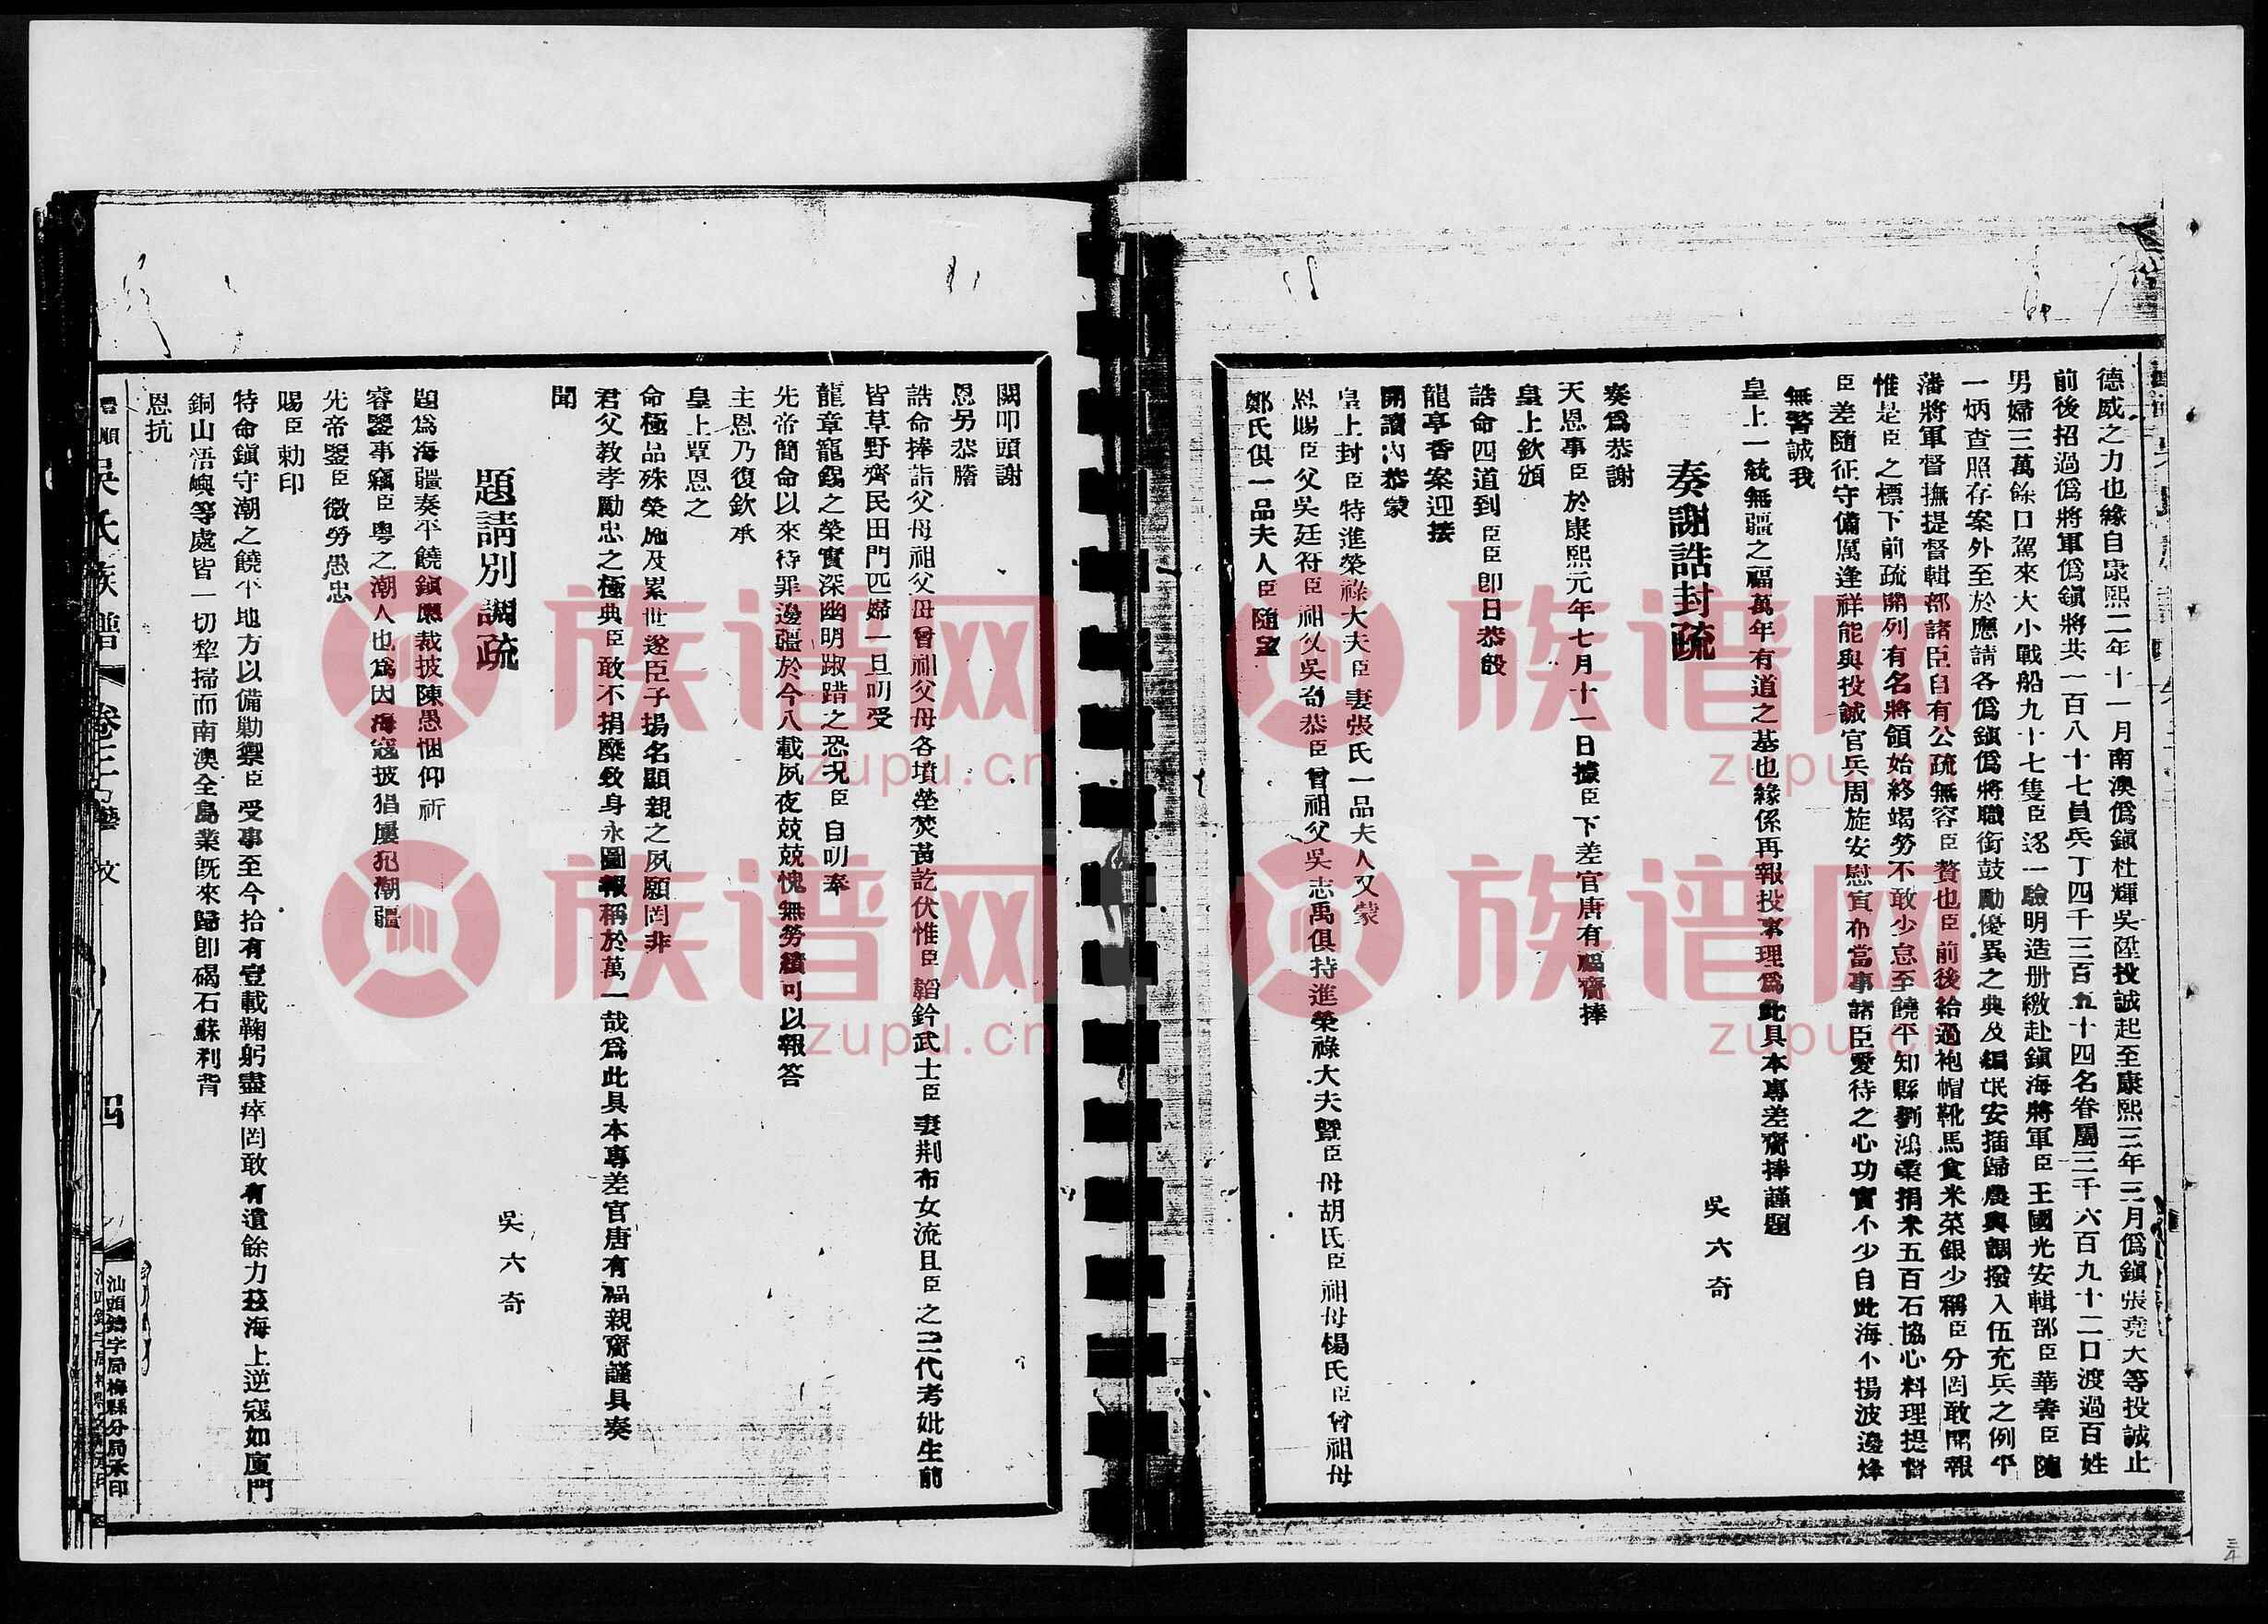 德威之力也緣自康熙二年十一月南澳僞鎮杜輝吳陞投誠起至康熙三年三月僞鎮張堯大等投誠止
前後招過僞將軍僞鎮將共一百八十七員兵丁四千三百五十四名眷屬三千六百九十二口渡過百姓
男婦三萬餘口駕來大小戰船九十七隻臣逐一驗明造册繳赴鎮海將軍臣王國光安輯部臣華善臣陳
一炳查照存案外至於應請各僞鎮僞將職銜鼓勵優異之典及編氓安插歸農與調撥入伍充兵之例平
藩將軍督撫提督輯部諸臣自有公疏無容臣贅也臣前後給過袍帽靴馬食米菜銀少稱臣分罔敢開報
惟是臣之標下前疏開列有名將領始終竭勞不敢少怠至饒平知縣劉鴻業捐米五百石協心料理提督
臣差隨征守備厲逢祥能與投誠官兵周旋安慰宣布當事諸臣愛待之心功實不少自此海不揚波邊烽
無警誠我
皇上一統無疆之福萬年有道之基也緣係再報投事理爲此具本專差齎捧謹題
奏謝誥封疏
吳六奇
奏爲恭謝
天恩事臣於康熙元年七月十一日據臣下差官唐有福齎捧
皇上欽頒
誥命四道到臣臣即日恭設
龍亭香案迎接
開讀內恭蒙
皇上封臣特進榮祿大夫臣妻張氏一品夫人又蒙
恩賜臣父吳廷符臣祖父吳奇恭臣曾祖父吳志禹俱特進榮祿大夫暨臣母胡氏臣祖母楊氏臣曾祖母
鄭氏俱一品夫人臣隨望
闕叩頭謝
恩另恭謄
誥命捧詣父母祖父母曾祖父母各墳塋焚黃訖伏惟臣韜鈐武士臣妻荆布女流且臣之三代考妣生前
皆草野齊民田門匹婦一旦叨受
龍章寵錫之榮實深幽明踧踖之恐况臣自叨奉
先帝簡命以來待罪邊疆於今八載夙夜兢兢愧無勞績可以報答
主恩乃復欽承
皇上覃恩之
命極品殊榮施及累世遂臣子揚名顯親之夙願罔非
君父教孝勵忠之極典臣敢不捐糜致身永圖報稱於萬一哉爲此具本專差官唐有福親齎謹具奏
聞
題請別調疏
吳六奇
題爲海疆奏平饒鎮應裁披陳愚悃仰祈
睿鑒事竊臣粵之潮人也爲因海寇披猖屢犯潮疆
先帝鑒臣微勞愚忠
賜臣勅印
特命鎮守潮之饒平地方以備勦禦臣受事至今拾有壹載鞠躬盡瘁罔敢有遺餘力茲海上逆寇如廈門
銅山浯嶼等處皆一切犂掃而南澳全島業既來歸卽碣石蘇利背
恩抗
豐順吳氏族譜 卷三 藝文 四
汕頭鑄字局梅縣分局承印
族谱网
zupu.cn
族谱网
zupu.cn
族谱网
zupu.cn
族谱网
zupu.cn